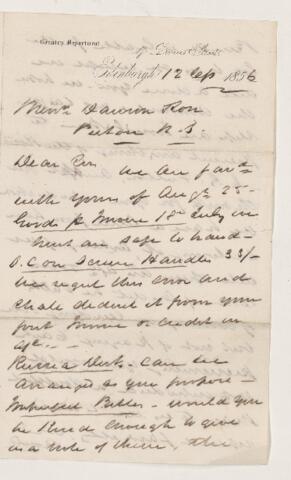 Country Department
Street
Edinburgh 12 Sep 1856
Messrs Dawson & Son
Pictou N.S
Dear Sirs
We are favd
with yours of Augt 25 -
Goods p Invoice 18th July
are safe to hand -
on Screw Handles 33/-
We regret this error and
shall deduct it from your
Invoice or credit in
a/c -
can be
arranged as you propose -
Bibles - would you
be kind enough to give
us a note of these, the